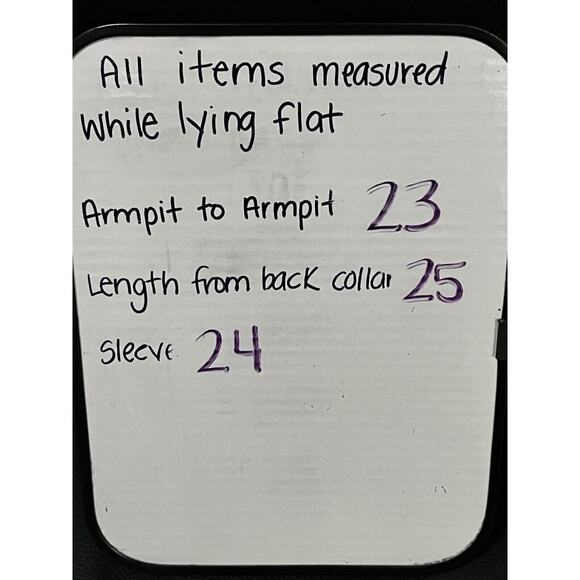 All items measured
while lying flat
Armpit to Armpit 23
Length from back collar 25
Sleeve 24